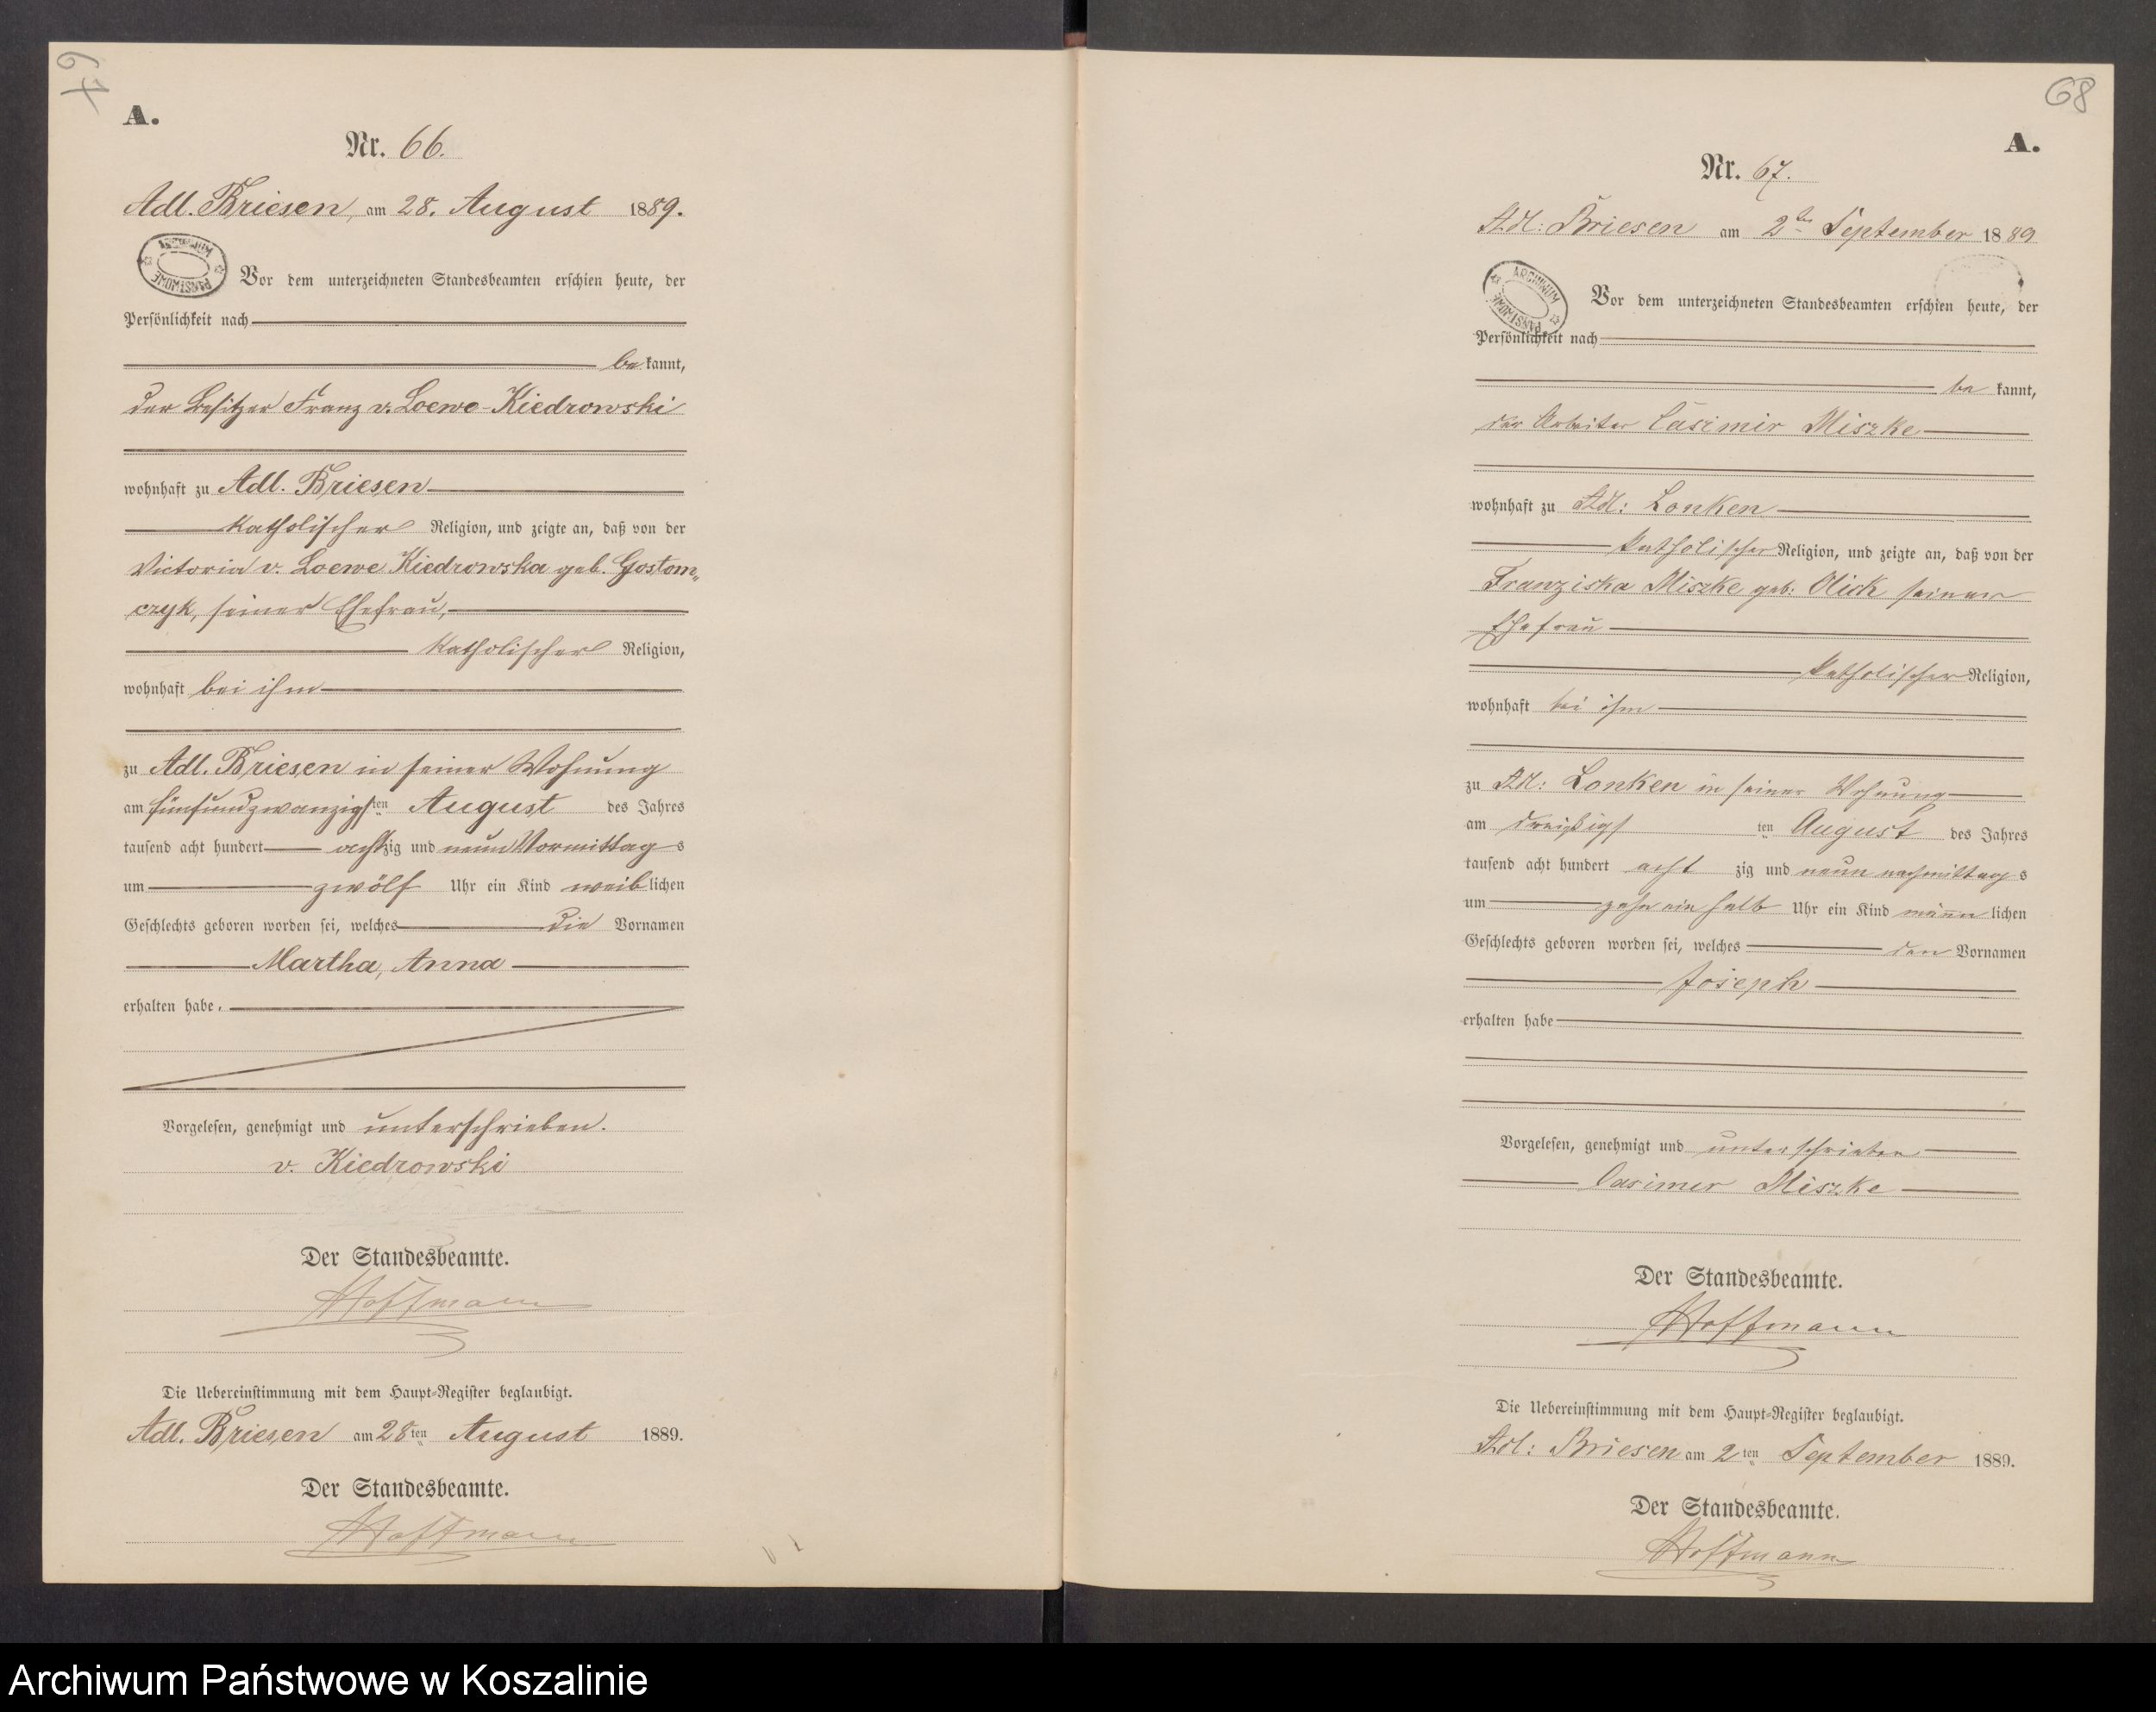 67
A.
Nr. 66.
Adl. Briesen, am 28. August 1889.
ARCHIWUM PAŃSTWOWE
Vor dem unterzeichneten Standesbeamten erschien heute, der
Persönlichkeit nach
be kannt,
der Besitzer Franz v. Loewe-Kiedrowski
wohnhaft zu Adl. Briesen
katholischer Religion, und zeigte an, daß von der
Victoria v. Loewe Kiedrowska geb. Gostom„
czyk, seiner Ehefrau,
katholischer Religion,
wohnhaft bei ihm
zu Adl. Briesen in seiner Wohnung
am fünfundzwanzigsten August des Jahres
tausend acht hundert achtzig und neun Vormittag s
um zwölf Uhr ein Kind weiblichen
Geschlechts geboren worden sei, welches die Vornamen
Martha, Anna
erhalten habe.
Vorgelesen, genehmigt und unterschrieben.
v. Kiedrowski
Der Standesbeamte.
Hoffmann
Die Uebereinstimmung mit dem Haupt-Register beglaubigt.
Adl. Briesen am 28ten August 1889.
Der Standesbeamte.
Hoffmann
68
A.
Nr. 67.
Adl: Briesen am 2ten September 1889
ARCHIWUM PAŃSTWOWE
Vor dem unterzeichneten Standesbeamten erschien heute, der
Persönlichkeit nach
be kannt,
der Arbeiter Casimir Miszke
wohnhaft zu Adl: Lonken
katholischer Religion, und zeigte an, daß von der
Franziska Miszke geb: Olick seiner
Ehefrau
katholischer Religion,
wohnhaft bei ihm
zu Adl: Lonken in seiner Wohnung
am dreißigsten August des Jahres
tausend acht hundert acht zig und neun nachmittag s
um zehn ein halb Uhr ein Kind männlichen
Geschlechts geboren worden sei, welches den Vornamen
Joseph
erhalten habe
Vorgelesen, genehmigt und unterschrieben
Casimer Miszke
Der Standesbeamte.
Hoffmann
Die Uebereinstimmung mit dem Haupt-Register beglaubigt.
Adl: Briesen am 2ten September 1889.
Der Standesbeamte.
Hoffmann
Archiwum Państwowe w Koszalinie